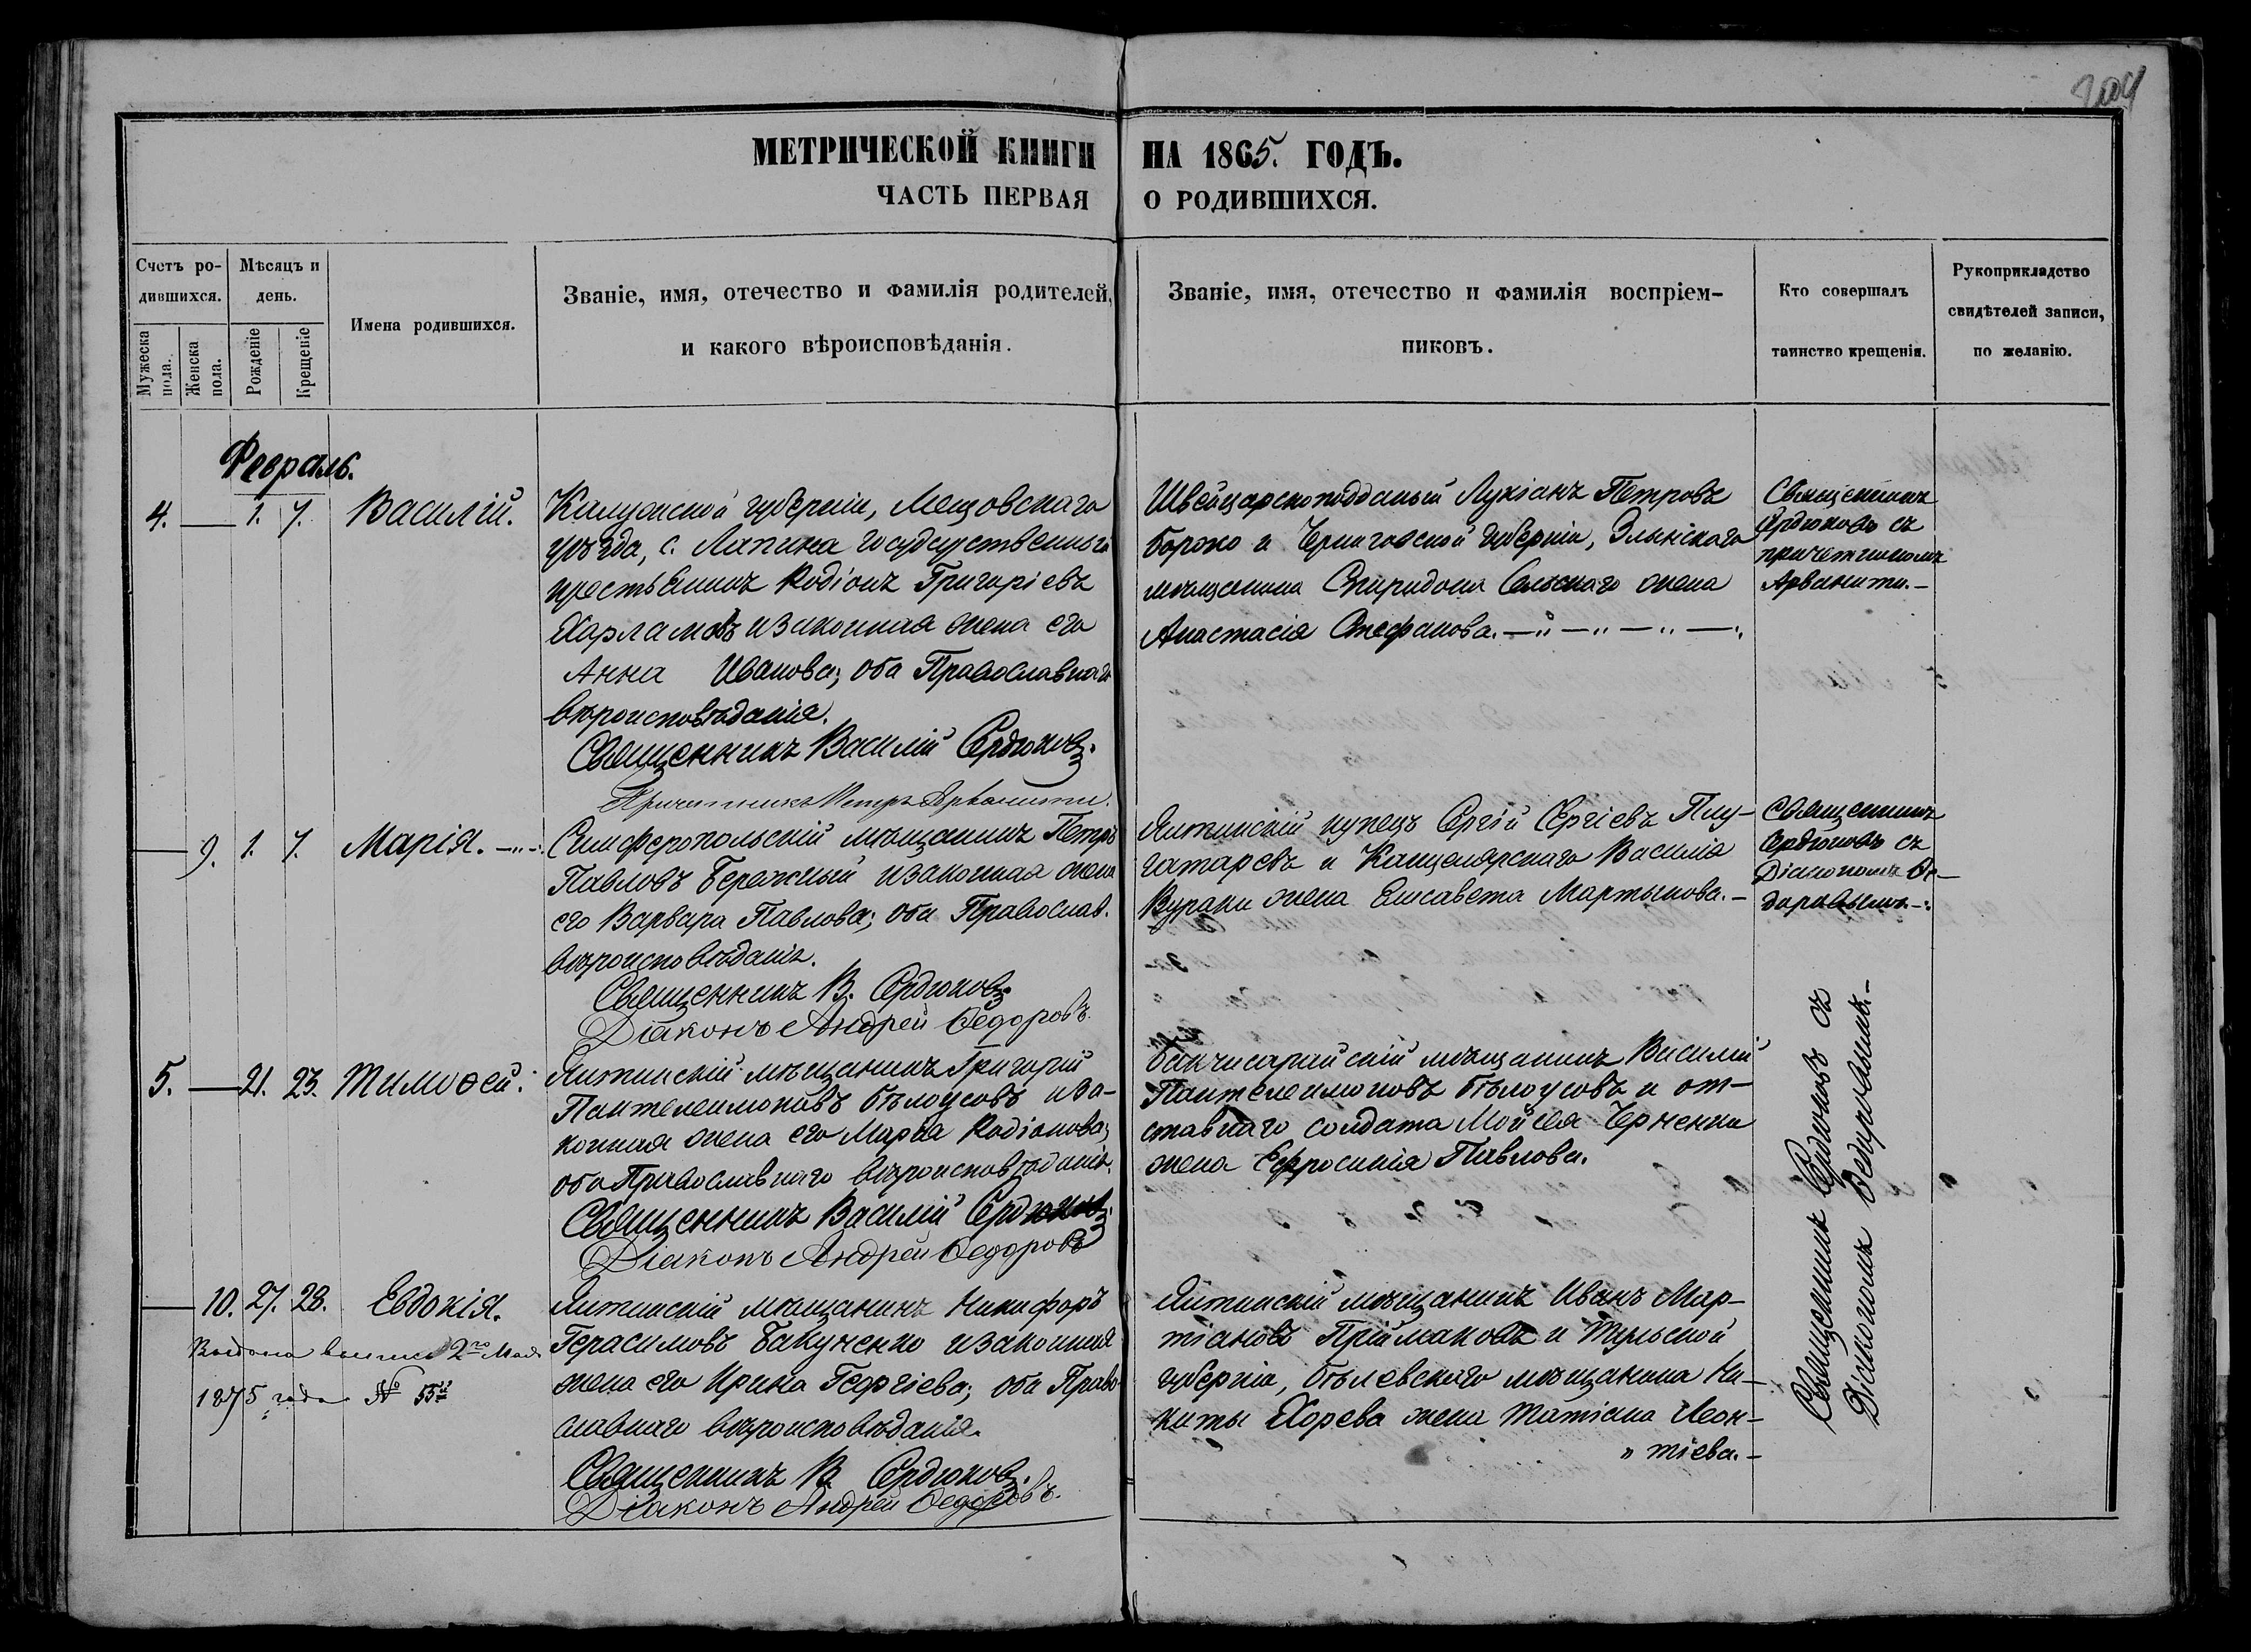 204
МЕТРИЧЕСКОЙ КНИГИ НА 1865. ГОДЪ.
ЧАСТЬ ПЕРВАЯ О РОДИВШИХСЯ.
Счетъ ро-
дившихся.
Мужеска
пола.
Женска
пола.
Мѣсяцъ и
день.
Рожденіе
Крещеніе
Имена родившихся.
Званіе, имя, отечество и фамилія родителей,
и какого вѣроисповѣданія.
Званіе, имя, отечество и фамилія воспріем-
никовъ.
Кто совершалъ
таинство крещенія.
Рукоприкладство
свидѣтелей записи,
по желанію.
Февраль.
4. — 1. 7. Василій.
Калужской губерніи, Мещовскаго
уѣзда, с. Лапина государственный
крестьянинъ Родіонъ Григоріевъ
Харламовъ изаконная жена его
Анна Иванова; оба Православнаго
вѣроисповѣданія.
Священникъ Василій Сердюковъ.
Причетникъ Петръ Арванити.
Швейцарскоподданый Лукіанъ Петровъ
Бороно и Черниговской губерніи,
мѣщанина Спиридона жена
Анастасія Стефанова.
Священникъ
Сердюковъ съ
причетникомъ
Арванити.—
— 9. 1. 7. Марія.
Симферопольскій мѣщанинъ Петръ
Павловъ Бережный изаконная жена
его Варвара Павлова; оба Православ.
вѣроисповѣданія.
Священникъ В. Сердюковъ.
Діаконъ Андрей Ѳедоровъ.
Ялтинскій купецъ Сергій Сергіевъ Плу-
гатаревъ и Канцелярскаго Василія
Вураки жена Елисавета Мартынова.—
Священникъ
Сердюковъ съ
Діакономъ Ѳе-
доровымъ.
5. — 21. 23. Тимоѳей.
Ялтинскій мѣщанинъ Григорій
Пантелеимоновъ Бѣлоусовъ иза-
конная жена его Марѳа Родіонова;
оба Православнаго вѣроисповѣданія.
Священникъ Василій Сердюковъ.
Діаконъ Андрей Ѳедоровъ
Бакчисарайскій мѣщанинъ Василій
Пантелеимоновъ Бѣлоусовъ и от-
ставнаго солдата Мойсея Черненки
жена Ефросинія Павлова.
Священникъ Сердюковъ съ
Діакономъ Ѳедоровымъ.—
— 10. 27. 28. Евдокія.
Выдана выпись 2го Мая
1875 года № 55й
Ялтинскій мѣщанинъ Никифоръ
Герасимовъ Бакуменко изаконная
жена его Ирина Георгіева; оба Право-
славнаго вѣроисповѣданія.
Священникъ В. Сердюковъ.
Діаконъ Андрей Ѳедоровъ.
Ялтинскій мѣщанинъ Иванъ Мар-
тіановъ Пріймаковъ и Тульской
губерніи, Бѣлевскаго мѣщанина Ни-
киты Хорева жена Татіана Леон-
" тіева.—